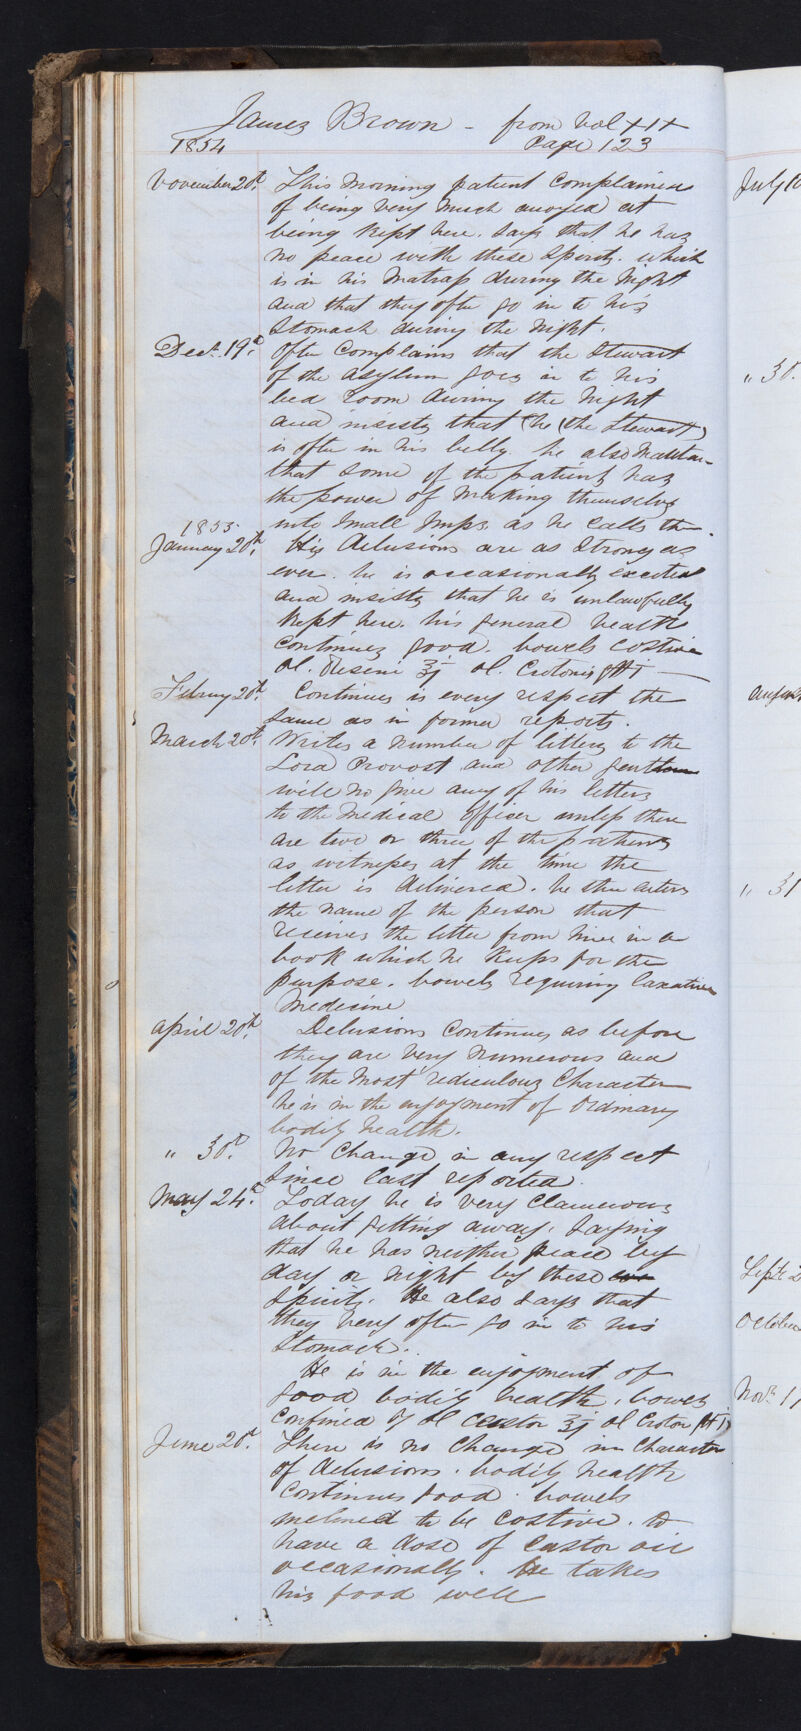 James Brown - from Vol XIX
1854 Page 123
November 20th. This Morning patient Complained
of being very much anoyed at
being kept here. Says that he has
no peace with these Spirits. which
is in his Matrass during the Night
and that they often go in to his
Stomach during the Night.
Dect. 19th. Often Complains that the Stewart
of the Asylum goes in to his
bed room during the Night
and insists that (he (the Stewart)
is often in his belly. he also
that some of the patients has
the power of Making themselves
1855 into Small Imps as he calls them.
January 20th. His delusions are as Strong as
ever. he is occasionally excited
and insists that he is unlawfully
kept here. his general health
Continues good. bowels Costive
Ol. Ricini ʒj Ol. Crotonis gtt i
Februy 20th. Continues is every respect the
Same as in former reports.
March 20th. Writes a number of letters to the
Lord Provost and other
will no give any of his letters
to the Medical Officer unless there
are two or three of the patients
as witnesses at the time the
letter is delivered. he then enters
the name of the person that
receives the letter from him in a
book which he keeps for the
purpose. bowels requiring laxative
Medicine
April 20th. Delusions Continues as before
they are very numerous and
of the Most rediculous Character
he is in the enjoyment of Ordinary
bodily health.
" 30th. No Change in any respect
Since last reported.
May 24th. Today he is very Clamerous
about getting away. Saying
that he has neither peace by
day or night by these
Spirits. He also says that
they very often go in to his
Stomach.
He is in the enjoyment of
good bodily health. bowels
Confined Ol Castor ʒj Ol Croton gtt i
June 20th. There is no Change in Character
of delusions. bodily health
Continues good. bowels
inclined to be Costive. to
have a dose of Castor oil
occasionally. He takes
his food well
July
" 30.
August
" 31
Septr 2
October
Novr 1